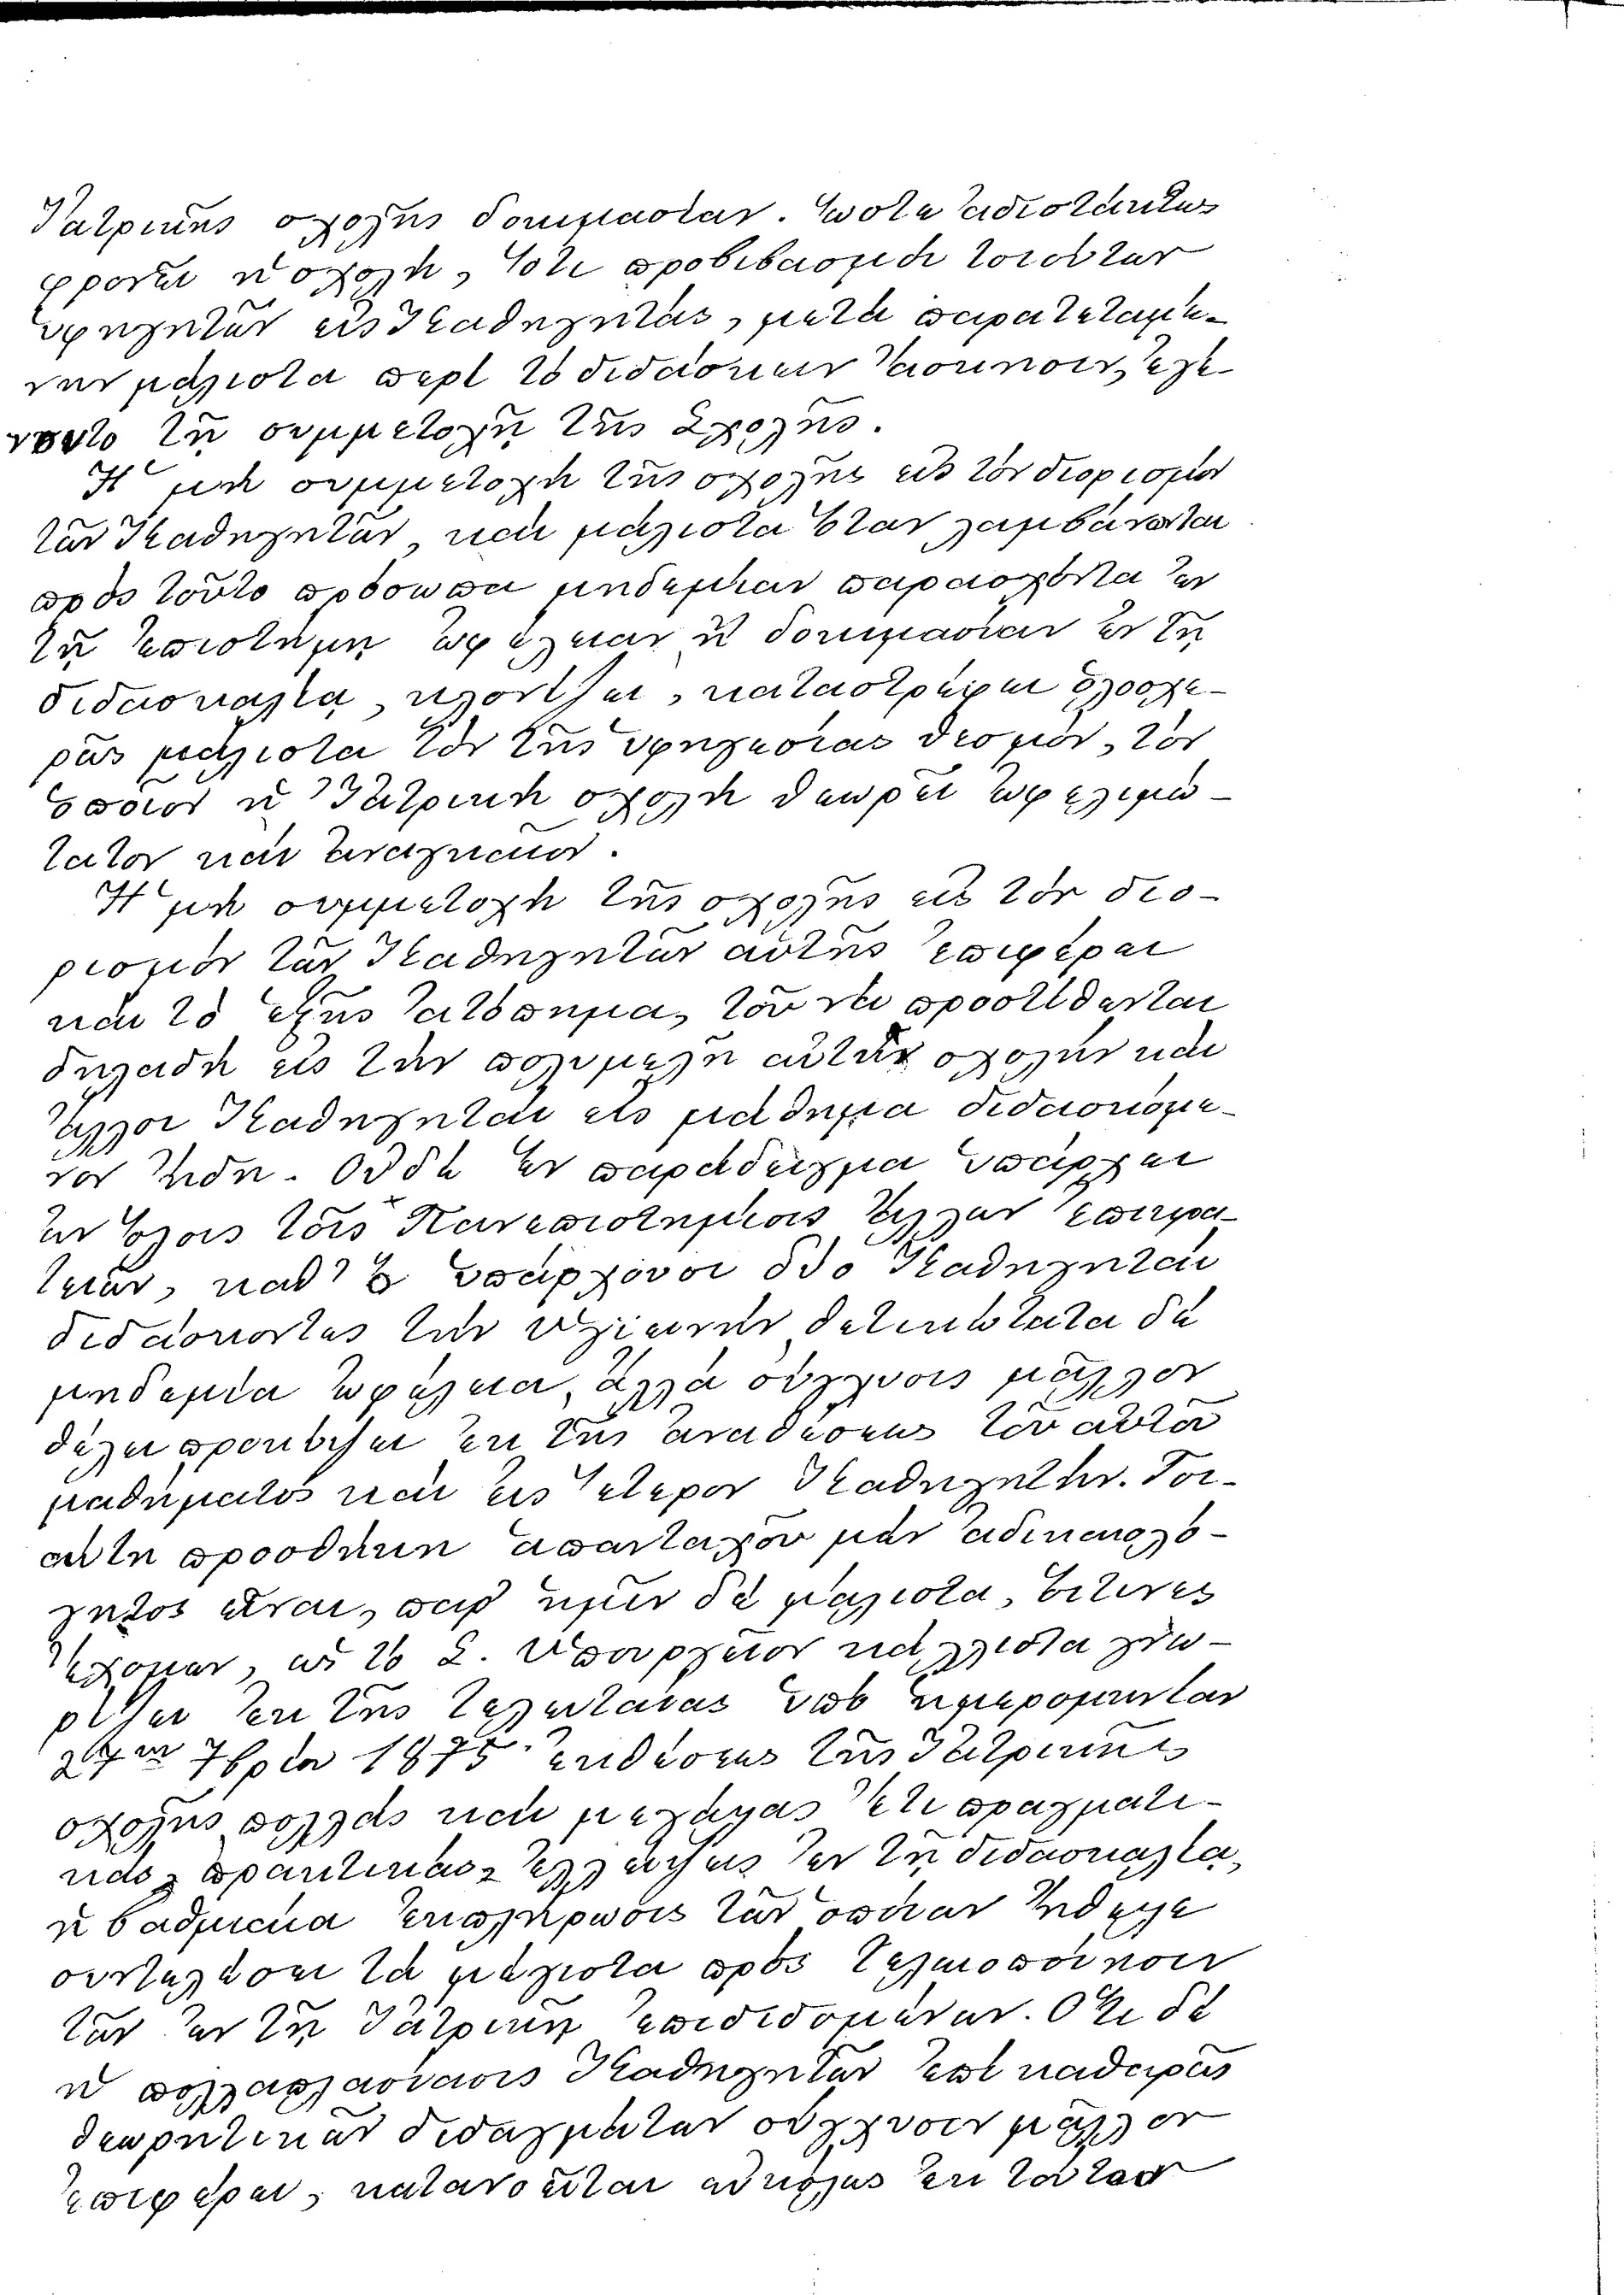 Ἰατρικῆς σχολῆς δοκιμασίαν. ὥστε ἀδιστάκτως
φρονεῖ ἡ σχολή, ὅτι προβιβασμοὶ τοιοῦτων
ὑφηγητῶν εἰς Καθηγητάς, μετὰ παρατεταμέ-
νην μάλιστα περὶ τὸ διδάσκειν ἄσκησιν, ἐγέ-
νοντο τῇ συμμετοχῇ τῆς Σχολῆς.
Ἡ μὴ συμμετοχὴ τῆς σχολῆς εἰς τὸν διορισμὸν
τῶν Καθηγητῶν, καὶ μάλιστα ὅταν λαμβάνωνται
πρὸς τοῦτο πρόσωπα μηδεμίαν παρασχόντα ἐν
τῇ ἐπιστήμῃ ὠφέλειαν ἢ δοκιμασίαν ἐν τῇ
διδασκαλίᾳ, κλονίζει, καταστρέφει ὁλοσχε-
ρῶς μάλιστα τὸν τῆς ὑφηγεσίας θεσμόν, τὸν
ὁποῖον ἡ Ἰατρικὴ σχολὴ θεωρεῖ ὠφελιμώ-
τατον καὶ ἀναγκαῖον.
Ἡ μὴ συμμετοχὴ τῆς σχολῆς εἰς τὸν διο-
ρισμὸν τῶν Καθηγητῶν αὐτῆς ἐπιφέρει
καὶ τὸ ἑξῆς ἀτόπημα, τοῦ νὰ προστίθενται
δηλαδὴ εἰς τὴν πολυμελῆ αὐτὴν σχολὴν καὶ
ἄλλοι Καθηγηταὶ εἰς μάθημα διδασκόμε-
νον ἤδη. Οὐδὲ ἓν παράδειγμα ὑπάρχει
ἐν ὅλοις τοῖς Πανεπιστημίοις ἄλλων ἐπικρα-
τειῶν, καθ' ὃ ὑπάρχουσι δύο Καθηγηταὶ
διδάσκοντες τὴν ὑγιεινήν, θετικώτατα δὲ
μηδεμία ὠφέλεια, ἀλλὰ σύγχυσις μᾶλλον
θέλει προκύψει ἐκ τῆς ἀναθέσεως τοῦ αὐτοῦ
μαθήματος καὶ εἰς ἕτερον Καθηγητήν. Τοι-
αύτη προσθήκη ἁπανταχοῦ μὲν ἀδικαιολό-
γητος εἶναι, παρ' ἡμῖν δὲ μάλιστα, οἵτινες
ἔχομεν, ὡς τὸ Σ. Ὑπουργεῖον κάλλιστα γνω-
ρίζει ἐκ τῆς τελευταίας ὑπὸ ἡμερομηνίαν
27ην 7βρίου 1875 ἐκθέσεως τῆς Ἰατρικῆς
σχολῆς πολλὰς καὶ μεγάλας ἔτι πραγματι-
κάς, πρακτικάς, ἐλλείψεις ἐν τῇ διδασκαλίᾳ,
ἡ βαθμιαία ἐκπλήρωσις τῶν ὁποίων ἤθελε
συντελέσει τὰ μάλιστα πρὸς τελειοποίησιν
τῶν ἐν τῇ Ἰατρικῇ ἐπιδιδομένων. Ὅτι δὲ
ἡ πολλαπλασίασις Καθηγητῶν ἐπὶ καθαρῶς
θεωρητικῶν διδαγμάτων σύγχυσιν μᾶλλον
ἐπιφέρει, κατανοεῖται εὐκόλως ἐκ τούτων